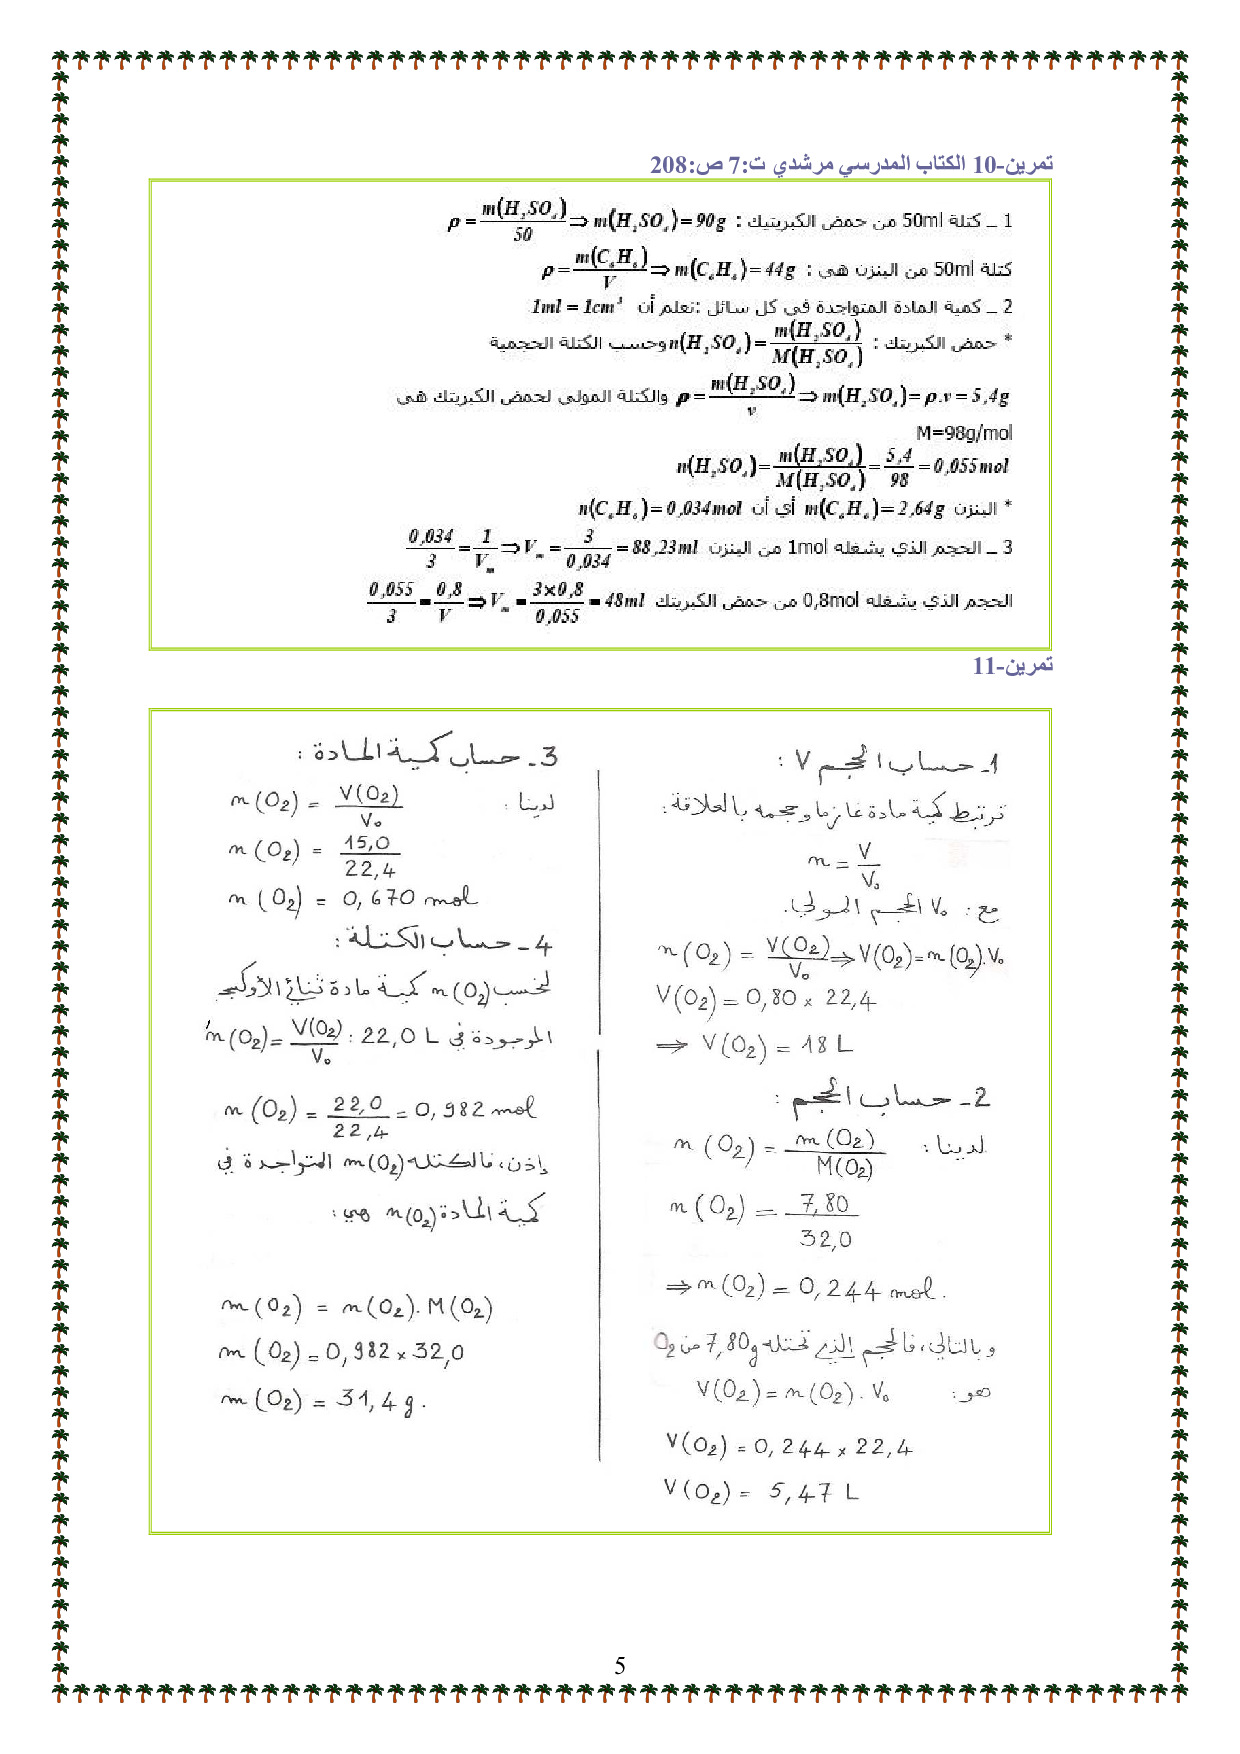 تمرين-10 الكتاب المدرسي مرشدي ت:7 ص:208
1 ــ كتلة 50ml من حمض الكبريتيك : ρ = m(H₂SO₄)/50 ⇒ m(H₂SO₄) = 90g
كتلة 50ml من البنزن هي : ρ = m(C₆H₆)/V ⇒ m(C₆H₆) = 44g
2 ــ كمية المادة المتواجدة في كل سائل :نعلم أن 1ml = 1cm³
* حمض الكبريتك : n(H₂SO₄) = m(H₂SO₄)/M(H₂SO₄) وحسب الكتلة الحجمية
ρ = m(H₂SO₄)/v ⇒ m(H₂SO₄) = ρ.v = 5,4g والكتلة المولى لحمض الكبريتك هي
M=98g/mol
n(H₂SO₄) = m(H₂SO₄)/M(H₂SO₄) = 5,4/98 = 0,055mol
* البنزن m(C₆H₆) = 2,64g أي أن n(C₆H₆) = 0,034mol
3 ــ الحجم الذي يشغله 1mol من البنزن 0,034/3 = 1/Vₘ ⇒ Vₘ = 3/0,034 = 88,23ml
الحجم الذي يشغله 0,8mol من حمض الكبريتك 0,055/3 = 0,8/V ⇒ Vₘ = 3×0,8/0,055 = 48ml
تمرين-11
1- حساب الحجم V :
ترتبط كمية مادة غاز ما وحجمه بالعلاقة:
n = V/V₀
مع : V₀ الحجم المولي.
n(O₂) = V(O₂)/V₀ ⇒ V(O₂) = n(O₂).V₀
V(O₂) = 0,80 × 22,4
⇒ V(O₂) = 18 L
2- حساب الحجم :
لدينا : n(O₂) = m(O₂)/M(O₂)
n(O₂) = 7,80/32,0
⇒ n(O₂) = 0,244 mol.
وبالتالي، فالحجم الذي تحتله 7,80g من O₂
هو: V(O₂) = n(O₂). V₀
V(O₂) = 0,244 × 22,4
V(O₂) = 5,47 L
3- حساب كمية المادة :
لدينا : n(O₂) = V(O₂)/V₀
n(O₂) = 15,0/22,4
n(O₂) = 0,670 mol
4- حساب الكتلة :
لنحسب n(O₂) كمية مادة ثنائي الأوكسيجين
الموجودة في 22,0 L : n(O₂) = V(O₂)/V₀
n(O₂) = 22,0/22,4 = 0,982 mol
إذن، فالكتلة m(O₂) المتواجدة في
كمية المادة n(O₂) هي:
m(O₂) = n(O₂). M(O₂)
m(O₂) = 0,982 × 32,0
m(O₂) = 31,4 g.
5